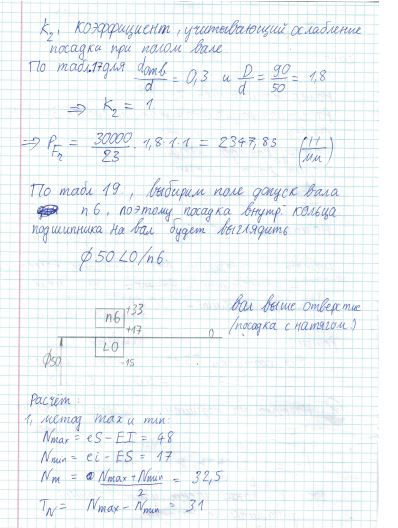 K2, коэффициент, учитывающий ослабление
посадки при полом вале.
По табл.17 для dотв/d = 0,3 и D/d = 90/50 = 1,8
⇒ K2 = 1.
⇒ PFr = 30000/23 · 1,8·1·1 = 2347,83 (Н/мм)
По табл 19, выбирим поле допуск вала
n6, поэтому посадка внутр. кольца
подшипника на вал будет выглядить
ϕ50 L0/n6
n6 +33
+17
0
L0
-15
ϕ50
вал выше отверстие
(посадка с натягом)
Расчёт:
1, метод max и min:
Nmax = eS - EI = 48
Nmin = ei - ES = 17
Nm = (Nmax + Nmin)/2 = 32,5
TN = Nmax - Nmin = 31